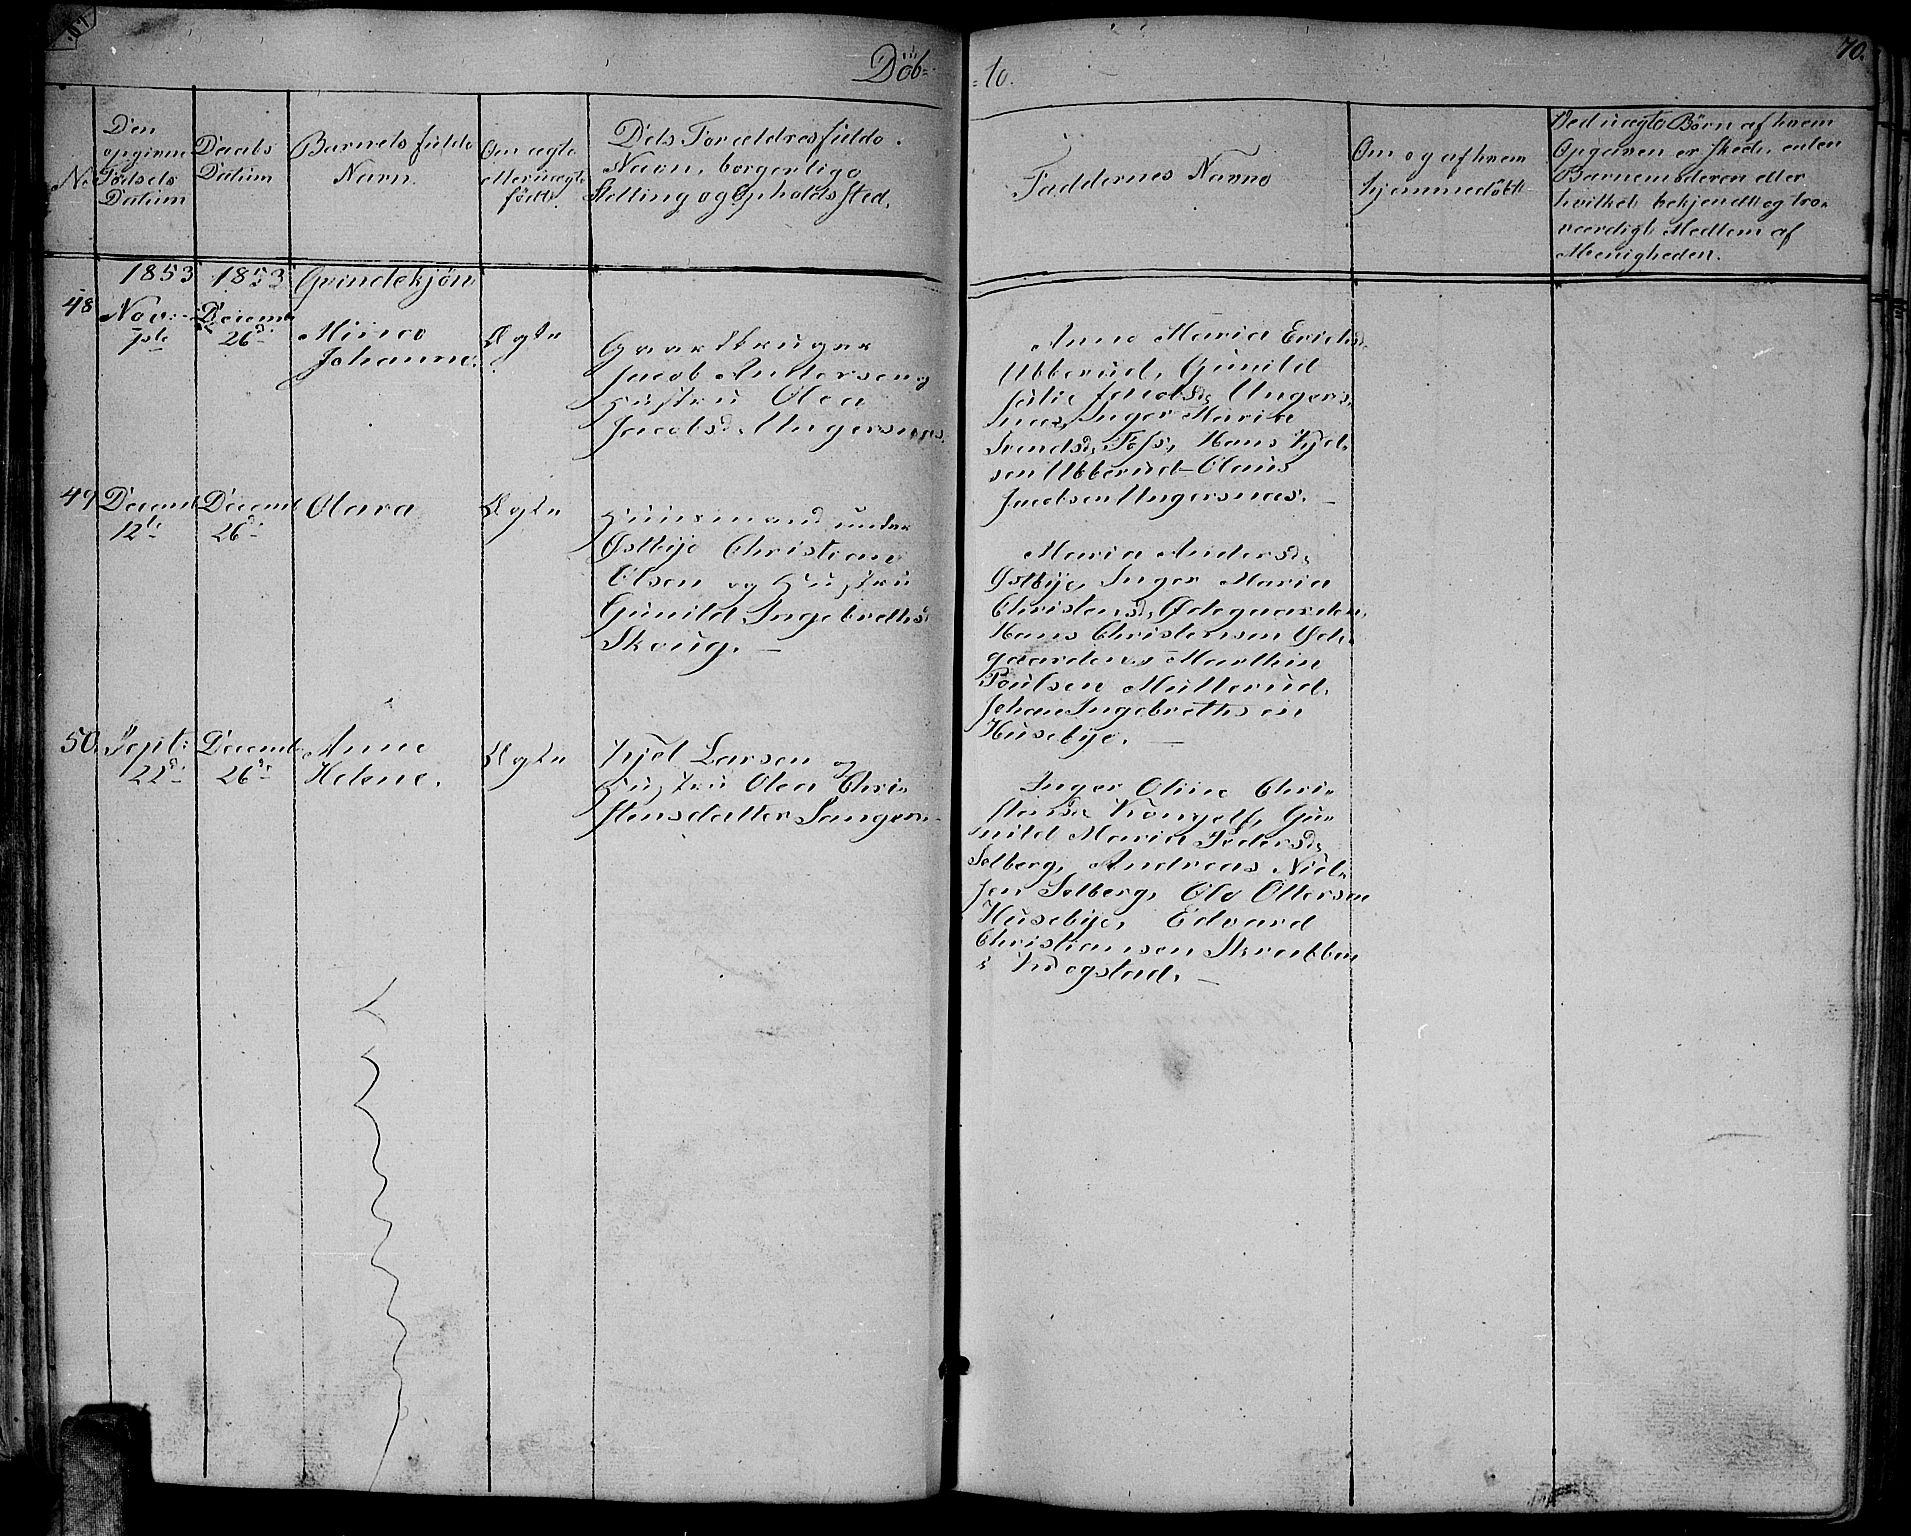 Döb=
=te.
70.
No
Den
opgivne
Födsels
Datum
Daabs
Datum
Barnets fulde
Navn.
Om ægte
eller uægte
født.
Dets Forældres fulde
Navn, borgerlige
Stelling og Opholdssted.
Faddernes Navne
Om og af hvem
hjemmedöbt
Ved uægte Börn af hvem
Opgaven er skeet, enten
Barnemoderen eller
hvilket bekjendt og tro-
værdigt Medlem af
Menigheden.
1853 1853 Qvindekjön
48
Nov:
7de
Decemb
26de
Mina
Johanne.
Ægte
Gaardbruger
Jacob Andersen og
Hustru Olea
Jacobsd. Ungersnæs.
Anne Maria Erichsd.
Ubberud, Gunild
Julie Jacobsd. Ungers-
næs, Inger Maria
Svendsd. Foss, Hans Kjel-
sen Ubberud Olaus
Jacobsen Ungersnæs. —
49
Decemb
12te
Decemb
26de
Olava
Ægte
Huusmand under
Østbye Christian
Olsen og Hustru
Gunild Ingebrethsd.
Skoug. —
Maria Andersd.
Østbye, Inger Maria
Christensd. Ødegaarden,
Hans Christensen Øde-
gaarden, Marthin
Poulsen Mullerud,
Johan Ingebrethsen
Husebye. —
50.
Sept:
22de
Decemb
26de
Anne
Helene.
Ægte
Kjel Larsen og
Hustru Olea Chri-
stensdatter Sangern
Inger Oline Chri-
stensd. Kongelf, Gu-
nild Maria Pedersd.
Solberg, Andreas Niel-
sen Solberg, Ole Ottersen
Husebye, Edvard
Christiansen Skrabben
i Krogstad. —